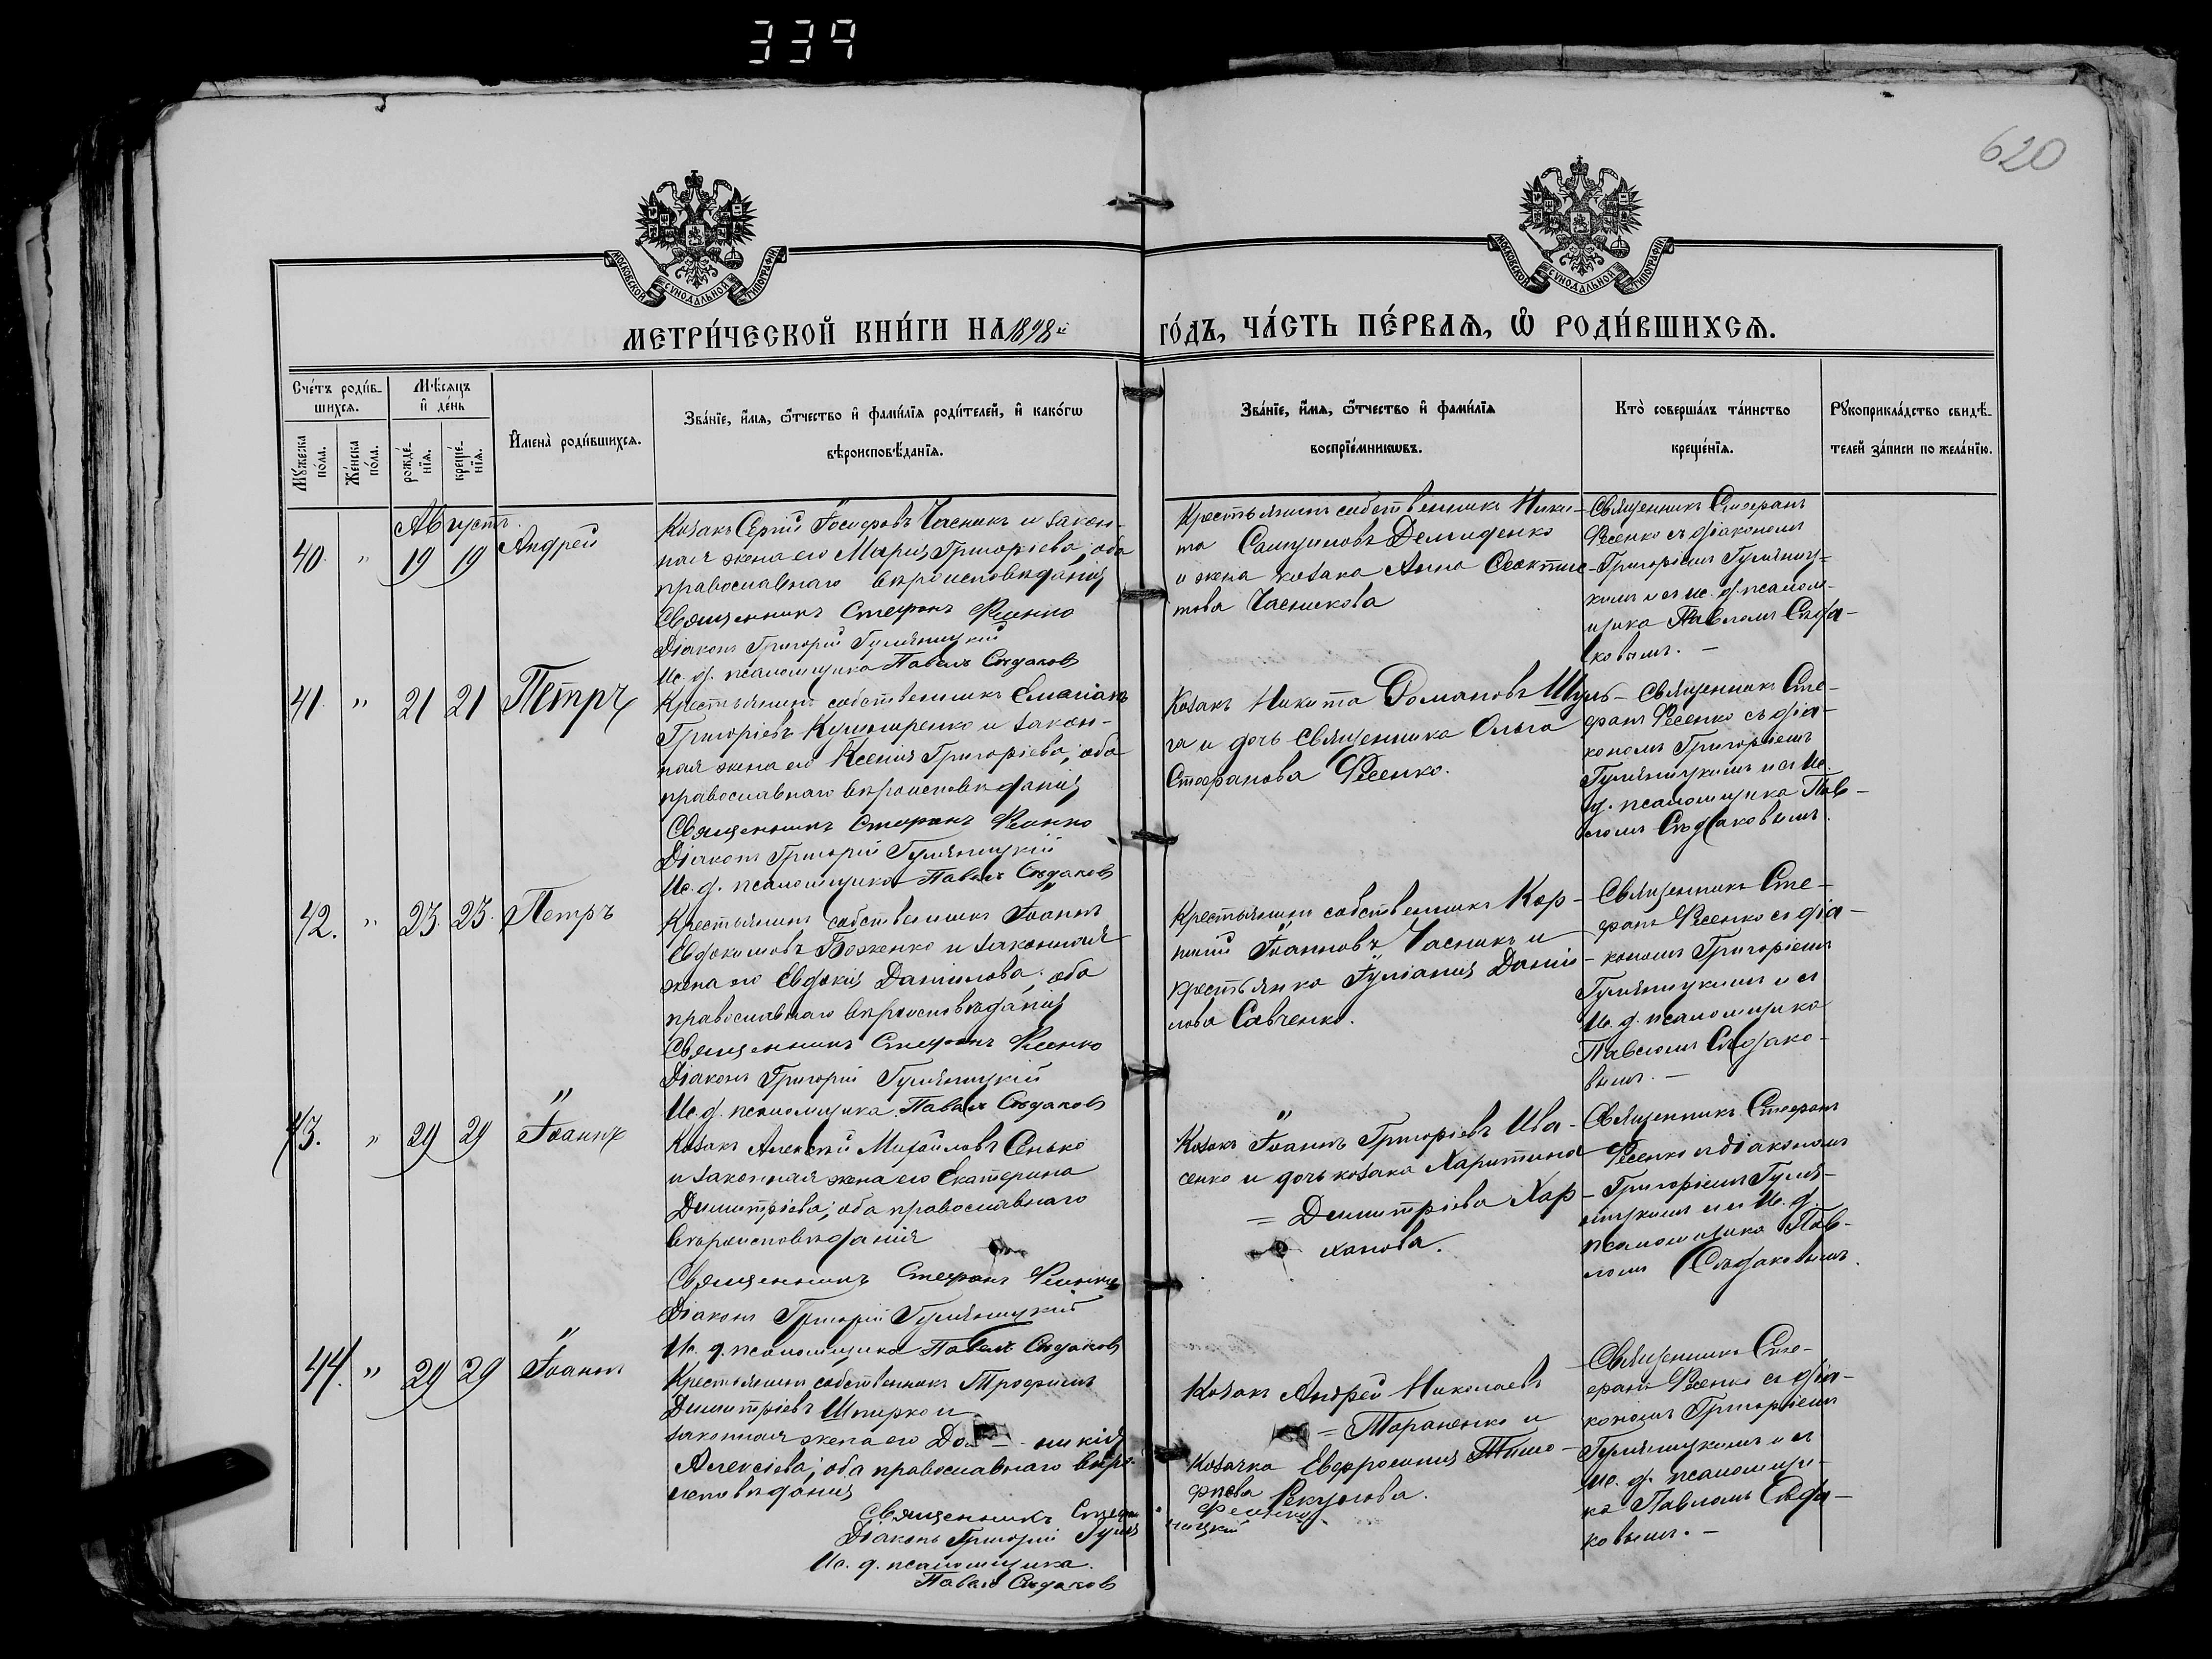 339
620
МОСКОВСКОЙ СУНОДАЛЬНОЙ ТИПОГРАФІИ
МОСКОВСКОЙ СУНОДАЛЬНОЙ ТИПОГРАФІИ
МЕТРИ́ЧЕСКОЙ КНИ́ГИ НА 1898й ГО́ДЪ, ЧА́СТЬ ПЕ́РВАѦ, Ѡ҆ РОДИ́ВШИХСѦ.
Сче́тъ роди́в-
шихсѧ.
Мꙋ́жеска по́ла.
Же́нска по́ла.
Мѣ́сѧцъ
и҆ де́нь
рожде́-
нїѧ.
креще́-
нїѧ.
И҆мена̀ роди́вшихсѧ.
Зва́нїе, и҆́мѧ, ѻ҆́тчество и҆ фами́лїѧ роди́телей, и҆ како́гѡ
вѣроисповѣ́данїѧ.
Зва́нїе, и҆́мѧ, ѻ҆́тчество и҆ фами́лїѧ
воспрїе́мникѡвъ.
Кто̀ соверша́лъ та́инство
креще́нїѧ.
Рꙋкоприкла́дство свидѣ́-
телей за́писи по жела́нїю.
Августъ.
40. " 19 19 Андрей
Козакъ Сергій Іосифовъ Часникъ и закон-
ная жена его Марія Григоріева; оба
православнаго вѣроисповѣданія
Священникъ Стефанъ Фесенко
Діаконъ Григорій Гуляницкій
Ис. д. псаломщика Павелъ Сѣдаковъ
Крестьянинъ собственникъ Ники-
та Демиденко
и жена козака Анна
Часникова
Священникъ Стефанъ
Фесенко съ діакономъ
Григоріемъ Гуляниц-
кимъ и съ ис. д. псалом-
щика Павломъ Сѣда-
ковымъ. –
41. " 21 21 Петръ
Крестьянинъ собственникъ Емилианъ
Григоріевъ Кушниренко и закон-
ная жена его Ксенія Григоріева; оба
православнаго вѣроисповѣданія
Священникъ Стефанъ Фесенко
Діаконъ Григорій Гуляницкій
Ис. д. псаломщика Павелъ Сѣдаковъ
Козакъ Никита Романовъ Шуль-
га и дочь священника Ольга
Стефанова Фесенко.
Священникъ Сте-
фанъ Фесенко съ діа-
кономъ Григоріемъ
Гуляницкимъ и съ Ис.
д. псаломщика Пав-
ломъ Сѣдаковымъ.
42. " 23. 23. Петръ
Крестьянинъ собственникъ Іоаннъ
Евдокимовъ Боженко и законная
жена его Евдокія Данилова; оба
православнаго вѣроисповѣданія
Священникъ Стефанъ Фесенко
Діаконъ Григорій Гуляницкій
Ис. д. псаломщика Павелъ Сѣдаковъ
Крестьянинъ собственникъ Кор-
нилій Іоанновъ Часникъ и
крестьянка Іуліанія Дани-
лова Савченко.
Священникъ Сте-
фанъ Фесенко съ діа-
кономъ Григоріемъ
Гуляницкимъ и съ
Ис. д. псаломщика
Павломъ Сѣдако-
вымъ. –
43. " 29 29 Іоаннъ
Козакъ Алексій Михайловъ Сенько
и законная жена его Екатерина
Димитріева; оба православнаго
вѣроисповѣданія
Священникъ Стефанъ Фесенко
Діаконъ Григорій Гуляницкій
Ис. д. псаломщика Павелъ Сѣдаковъ
Козакъ Іоаннъ Григоріевъ Ива-
сенко и дочь козака Харитина
= Димитріева Хар-
ханова.
Священникъ Стефанъ
Фесенко съ діакономъ
Григоріемъ Гуля-
ницкимъ и съ Ис. д.
псаломщика Пав-
ломъ Сѣдаковымъ.
44. " 29 29 Іоаннъ
Крестьянинъ собственникъ Трофимъ
Димитріевъ Шпирко и
законная жена его До – – никія
Алексіева; оба православнаго вѣро-
исповѣданія
Священникъ Стефанъ Фесенко
Діаконъ Григорій Гуляницкій
Ис. д. псаломщика.
Павелъ Сѣдаковъ
Козакъ Андрей Николаевъ
= Тараненко и
Козачка Евфросинія Тимо-
феева
Священникъ Сте-
фанъ Фесенко съ діа-
кономъ Григоріемъ
Гуляницкимъ и съ
Ис. д. псаломщи-
ка Павломъ Сѣда-
ковымъ. –